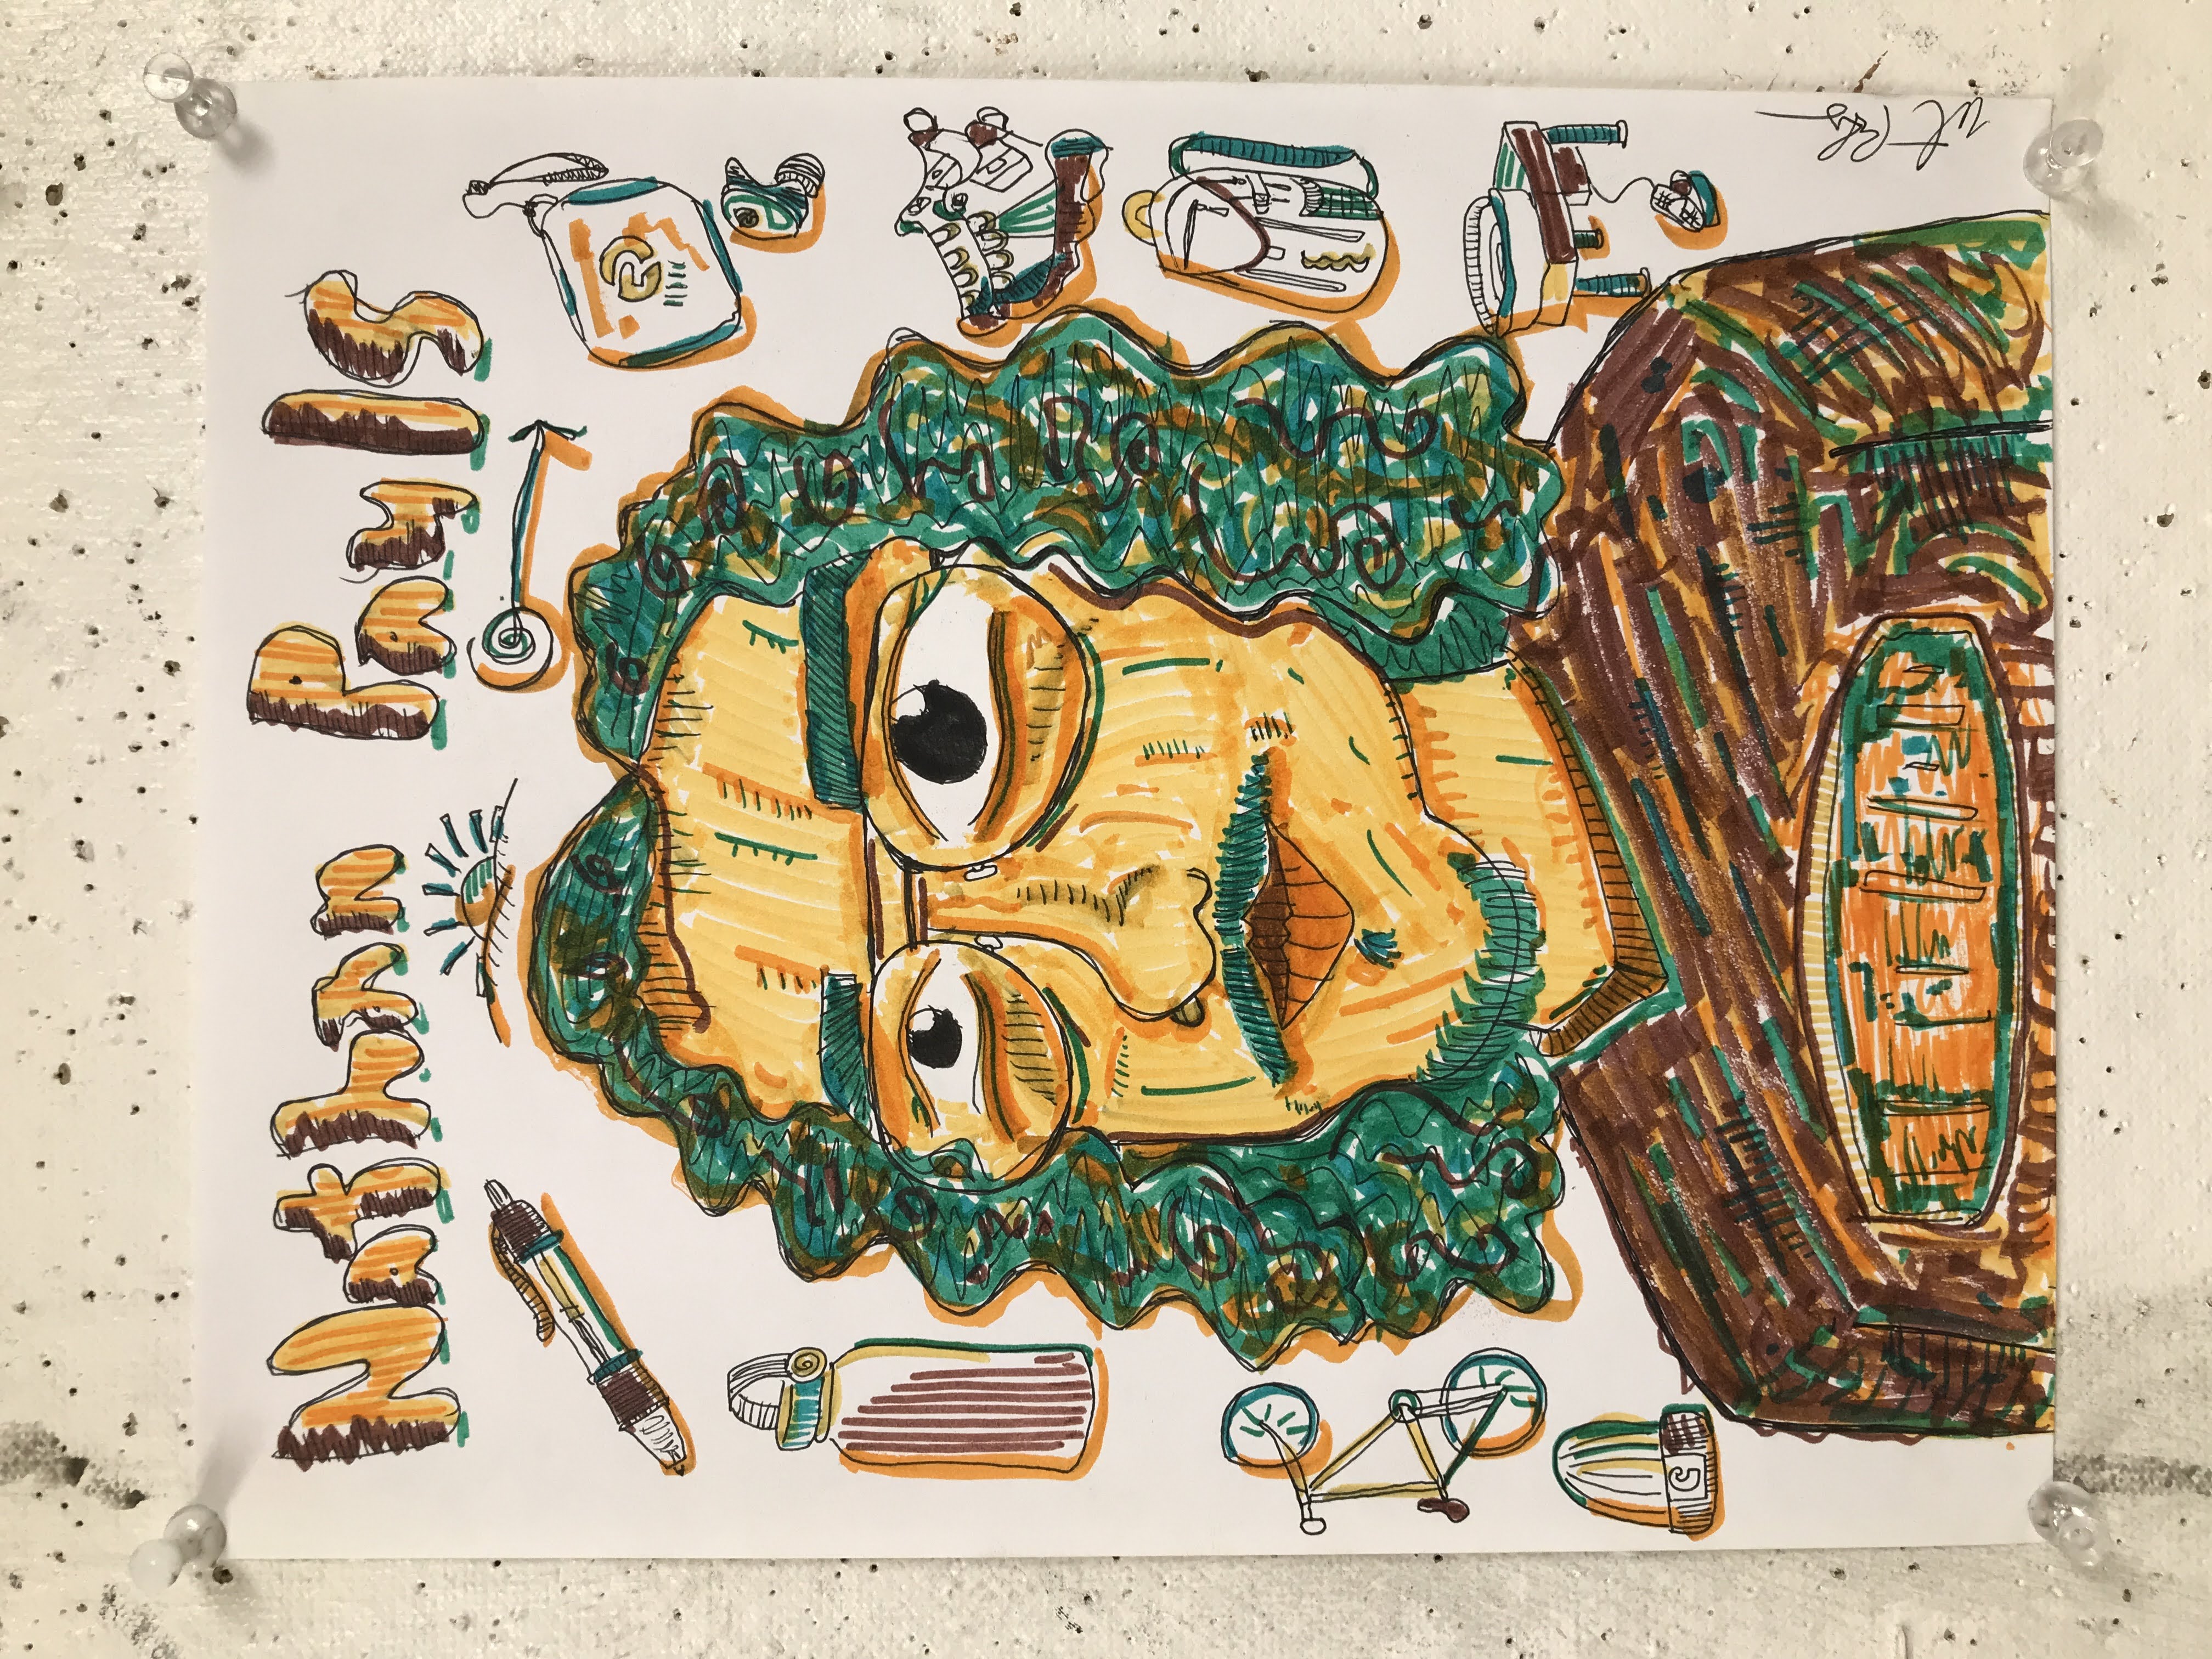 Nathan Pauls